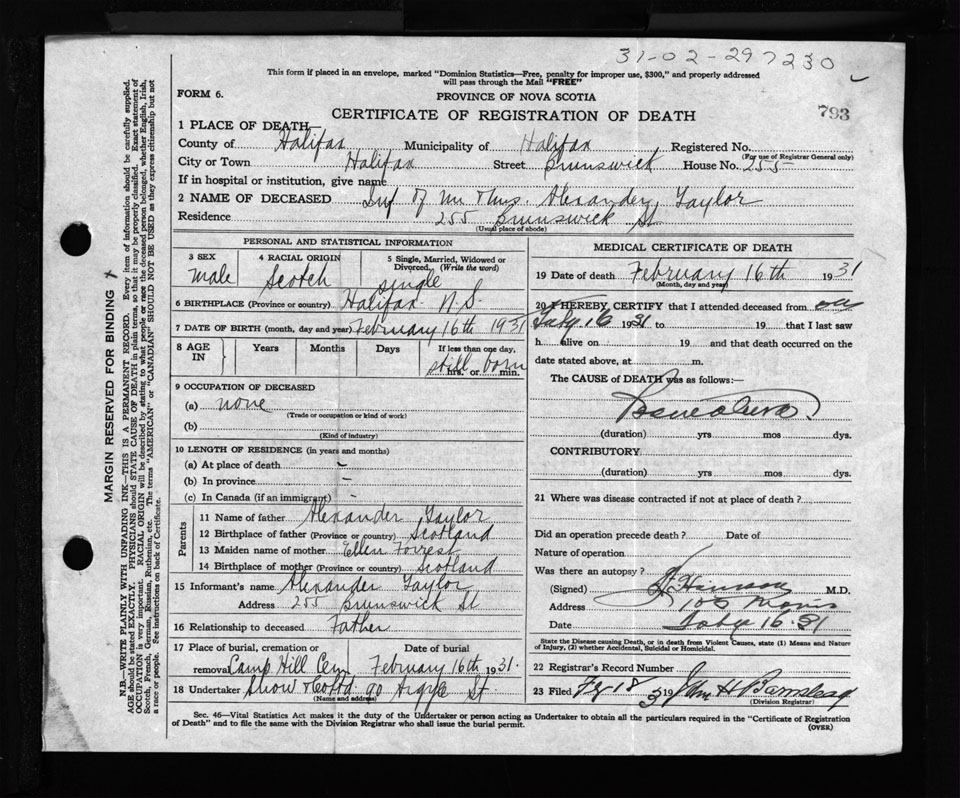 31-02-297230
This form if placed in an envelope, marked "Dominion Statistics—Free, penalty for improper use, $300," and properly addressed
will pass through the Mail "FREE"
FORM 6.
PROVINCE OF NOVA SCOTIA
CERTIFICATE OF REGISTRATION OF DEATH
793
1 PLACE OF DEATH—
County of Halifax Municipality of Halifax Registered No.
(For use of Registrar General only)
City or Town Halifax Street Brunswick House No. 255
If in hospital or institution, give name
2 NAME OF DECEASED Inf of Mr & Mrs. Alexander Taylor
Residence 255 Brunswick St
(Usual place of abode)
PERSONAL AND STATISTICAL INFORMATION
3 SEX male 4 RACIAL ORIGIN Scotch 5 Single, Married, Widowed or Divorced. (Write the word) single
6 BIRTHPLACE (Province or country) Halifax N.S.
7 DATE OF BIRTH (month, day and year) February 16th 1931
8 AGE IN Years Months Days If less than one day, hrs. or min. still born
9 OCCUPATION OF DECEASED
(a) none
(Trade or occupation or kind of work)
(b)
(Kind of industry)
10 LENGTH OF RESIDENCE (in years and months)
(a) At place of death –
(b) In province –
(c) In Canada (if an immigrant) –
Parents
11 Name of father Alexander Taylor
12 Birthplace of father (Province or country) Scotland
13 Maiden name of mother Ellen Forrest
14 Birthplace of mother (Province or country) Scotland
15 Informant's name Alexander Taylor
Address 255 Brunswick St
16 Relationship to deceased Father
17 Place of burial, cremation or removal Camp Hill Cem Date of burial February 16th 1931.
18 Undertaker Snow & Co Ltd 90 Argyle St
(Name and address)
MEDICAL CERTIFICATE OF DEATH
19 Date of death February 16th 1931
(Month, day and year)
20 I HEREBY CERTIFY that I attended deceased from on
Feby 16 1931 to 19 that I last saw
h alive on 19 and that death occurred on the
date stated above, at m.
The CAUSE of DEATH was as follows:—
(duration) yrs mos dys.
CONTRIBUTORY
(duration) yrs mos dys.
21 Where was disease contracted if not at place of death?
Did an operation precede death? Date of
Nature of operation
Was there an autopsy?
(Signed) M.D.
Address 106 Morris
Date Feby 16-31
State the Disease causing Death, or in death from Violent Causes, state (1) Means and Nature
of Injury, (2) whether Accidental, Suicidal or Homicidal.
22 Registrar's Record Number
23 Filed 18 1931 H Barnstead
(Division Registrar)
Sec. 46—Vital Statistics Act makes it the duty of the Undertaker or person acting as Undertaker to obtain all the particulars required in the "Certificate of Registration
of Death" and to file the same with the Division Registrar who shall issue the burial permit.
(OVER)
MARGIN RESERVED FOR BINDING
N.B.—WRITE PLAINLY WITH UNFADING INK—THIS IS A PERMANENT RECORD. Every item of information should be carefully supplied.
AGE should be stated EXACTLY. PHYSICIANS should STATE CAUSE OF DEATH in plain terms, so that it may be properly classified. Exact statement of
OCCUPATION is very important. RACIAL ORIGIN will be described by stating to what people or race the deceased person belonged, whether English, Irish,
Scotch, French, German, Russian, Ruthenian, etc. The terms "AMERICAN" or "CANADIAN" SHOULD NOT BE USED as they express citizenship but not
a race or people. See instructions on back of Certificate.